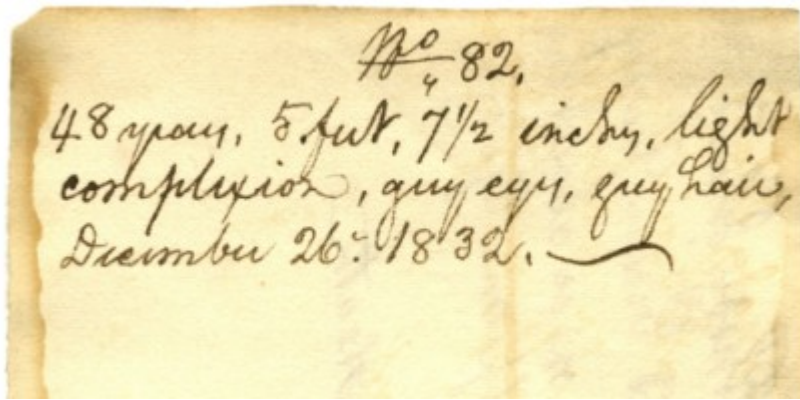 No 82.
48 years, 5 feet, 7 1/2 inches, light
complexion, grey eyes, grey hair,
December 26. 1832.